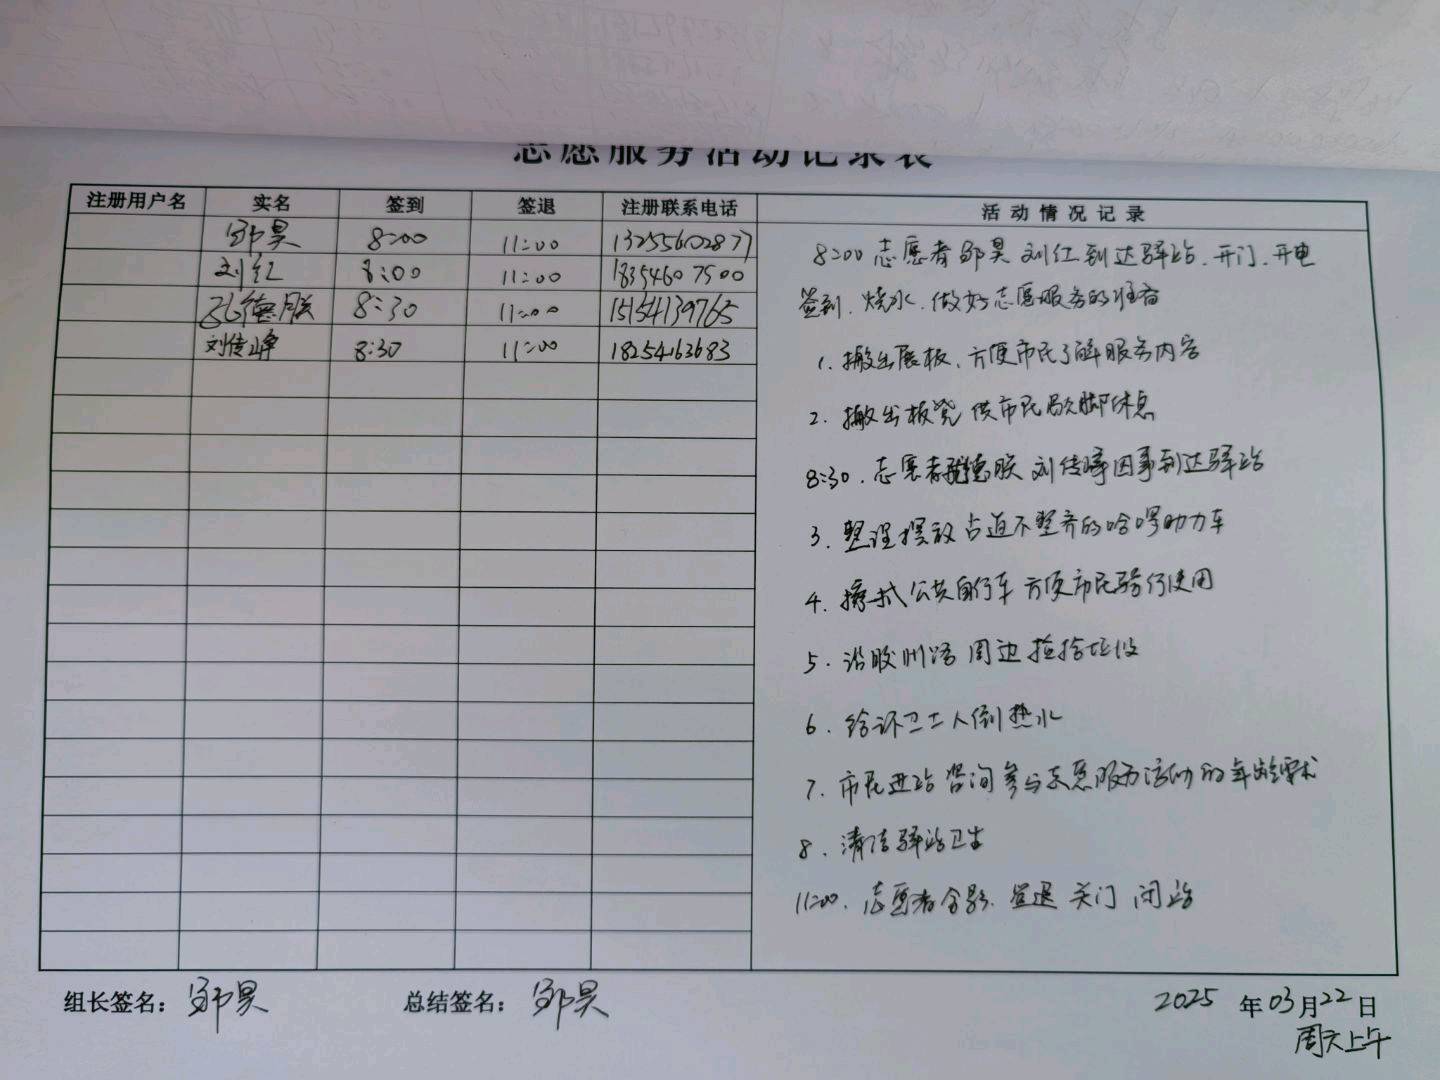 志愿服务活动记录表
注册用户名 实名 签到 签退 注册联系电话 活动情况记录
邹昊 8:00 11:00 13255602877
刘红 8:00 11:00 18354607500
孔德朕 8:30 11:00 15154139765
刘传峰 8:30 11:00 18254163683
8:00 志愿者邹昊 刘红到达驿站、开门、开电
签到、烧水、做好志愿服务的准备
1. 搬出展板、方便市民了解服务内容
2. 搬出板凳 供市民歇脚休息
8:30. 志愿者孔德朕 刘传峰因事到达驿站
3. 整理摆放占道不整齐的哈啰助力车
4. 擦拭公共自行车 方便市民骑行使用
5. 沿胶州路周边捡拾垃圾
6. 给环卫工人倒热水
7. 市民进站咨询参与志愿服务活动的年龄要求
8. 清洁驿站卫生
11:00. 志愿者合影. 签退 关门 闭站
组长签名：邹昊 总结签名：邹昊 2025年03月22日
周六上午